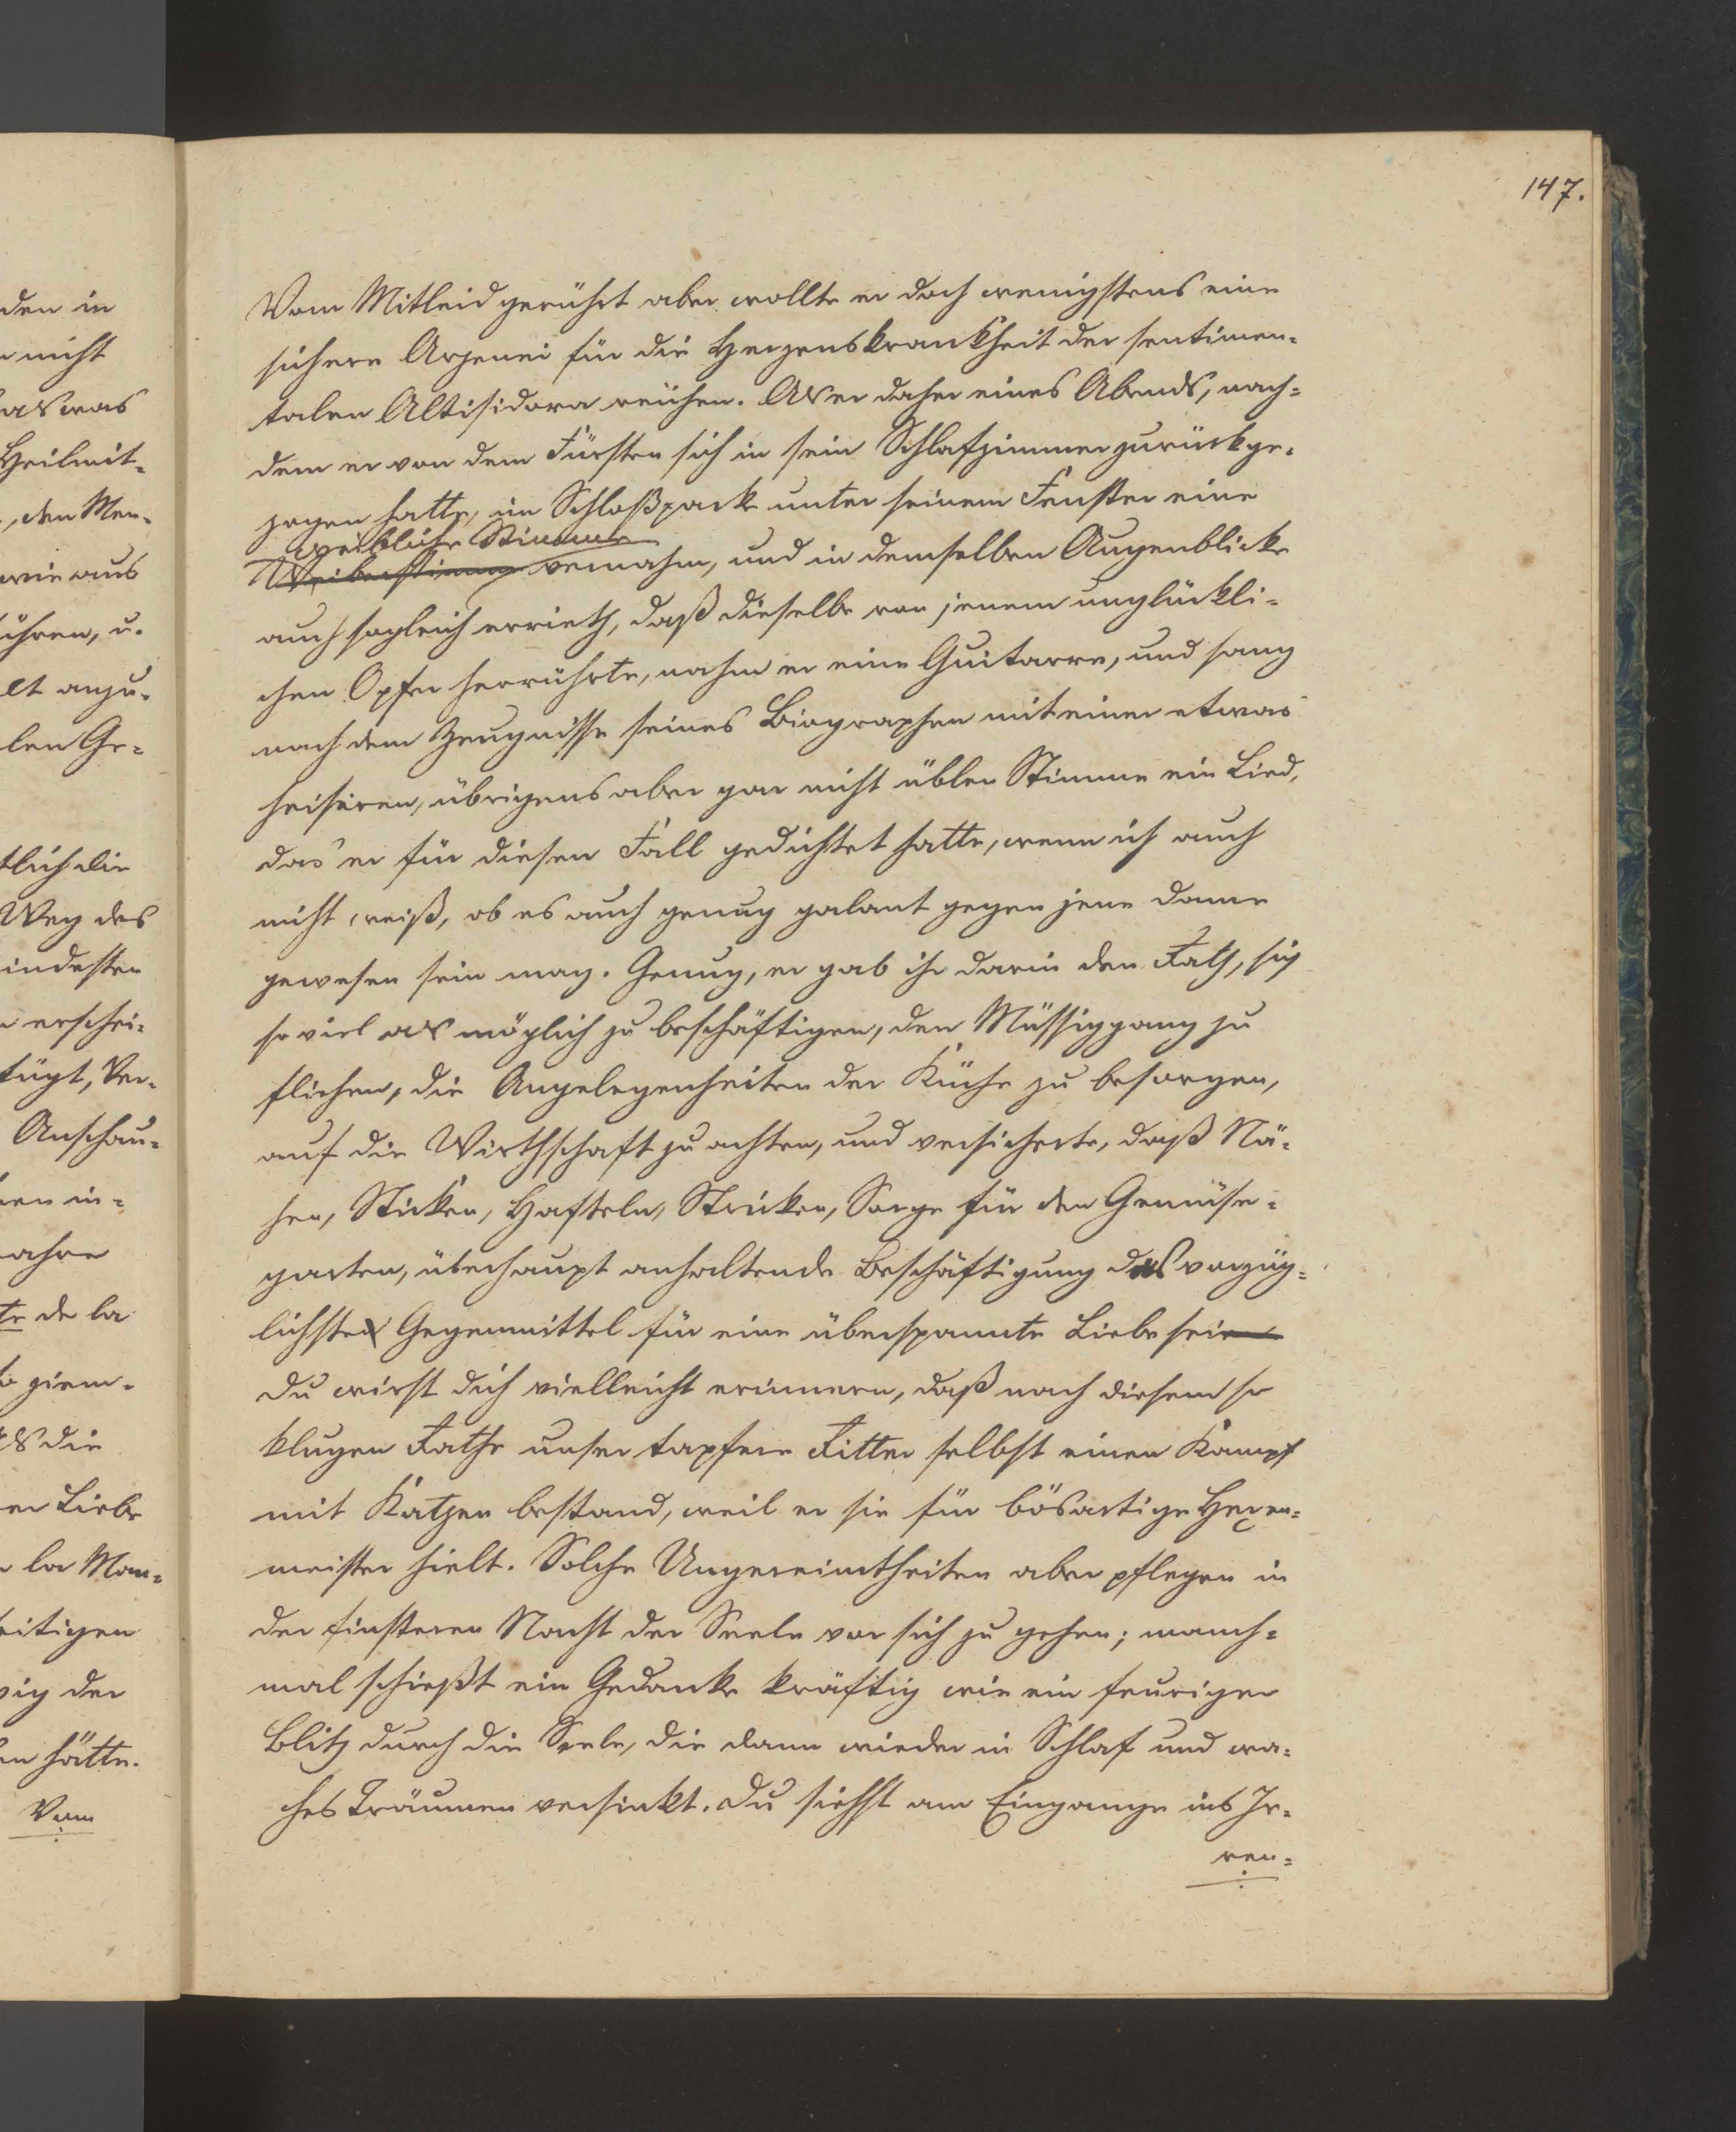 147.
Vom Mitleid gerührt aber wollte er doch wenigstens eine
sichere Arzenei für die Herzenskrankheit der sentimen-
talen Altisidora reichen. Als er daher eines Abends, nach-
dem er von dem Fürsten sich in sein Schlafzimmer zurückge-
zogen hatte, im Schloßpark unter seinem Fenster eine
weibliche Stimme
Weiberstimme vernahm, und in demselben Augenblicke
auch sogleich errieth, daß dieselbe von jenem unglückli-
chen Opfer herrührte, nahm er eine Guitarre, und sang
nach dem Zeugnisse seines Biographen mit einer etwas
heiseren, übrigens aber gar nicht üblen Stimme ein Lied,
das er für diesen Fall gedichtet hatte, wenn ich auch
nicht weiß, ob es auch genug galant gegen jene Dame
gewesen sein mag. Genug, er gab ihr darin den Rath, sich
so viel als möglich zu beschäftigen, den Müssiggang zu
fliehen, die Angelegenheiten der Küche zu besorgen,
auf die Wirthschaft zu achten, und versicherte, daß Nä-
hen, Sticken, Hafteln, Stricken, Sorge für den Gemüse-
garten, überhaupt anhaltende Beschäftigung das vorzüg-
lichste Gegenmittel für eine überspannte Liebe sei
Du wirst dich vielleicht erinnern, daß nach diesem so
klugen Rathe unser tapfere Ritter selbst einen Kampf
mit Katzen bestand, weil er sie für bösartige Hexen-
meister hielt. Solche Ungereimtheiten aber pflegen in
der finsteren Nacht der Seele vor sich zu gehen; manch-
mal schießt ein Gedanke kräftig wie ein feuriger
Blitz durch die Seele, die dann wieder in Schlaf und wa-
ches Träumen versinkt. Du siehst am Eingange ins Ir-
ren-
den in
nicht
als was
Heilmit-
, den Men-
wie aus
ühren, u.
lt anzu-
len Ge-
tlich die
Weg des
indesten
erschei-
fügt, Ver-
Anschau-
en in-
ahre
te de la
ziem-
als die
er Liebe
la Man-
eitigen
ig der
en hätte.
Vom